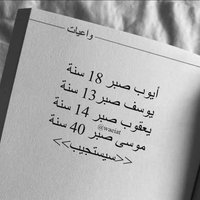 واعيات
أيوب صبر 18 سنة
يوسف صبر 13 سنة
يعقوب صبر 14 سنة
@waeiat
موسى صبر 40 سنة
<<سيستجيب>>